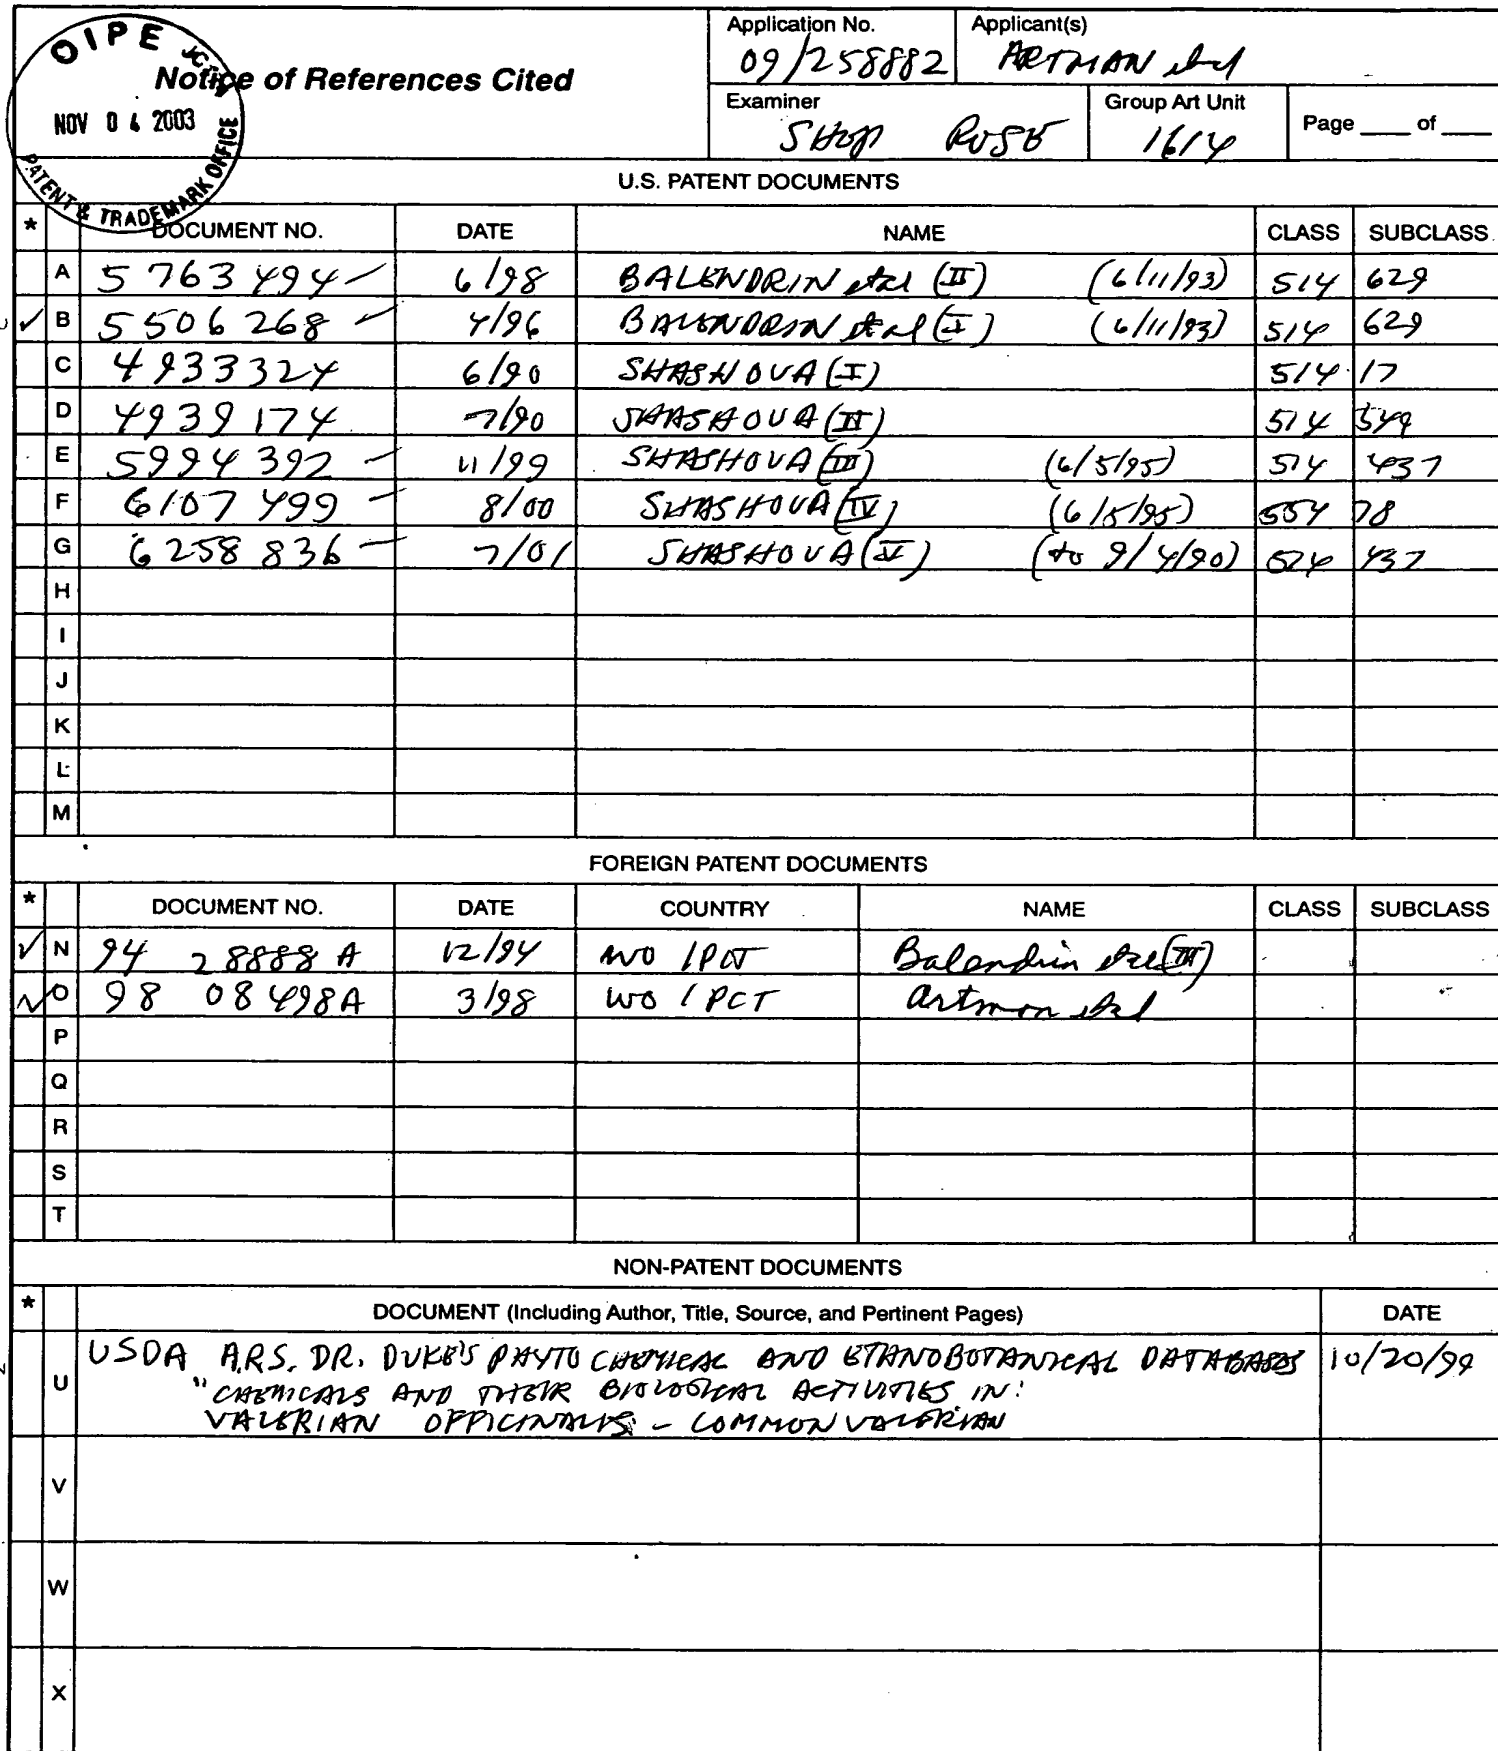 OIPE
NOV 04 2003
PATENT & TRADEMARK OFFICE
Notice of References Cited
Application No.
09/258882
Applicant(s)
ARTMAN et al
Examiner
Group Art Unit
1614
Page ____ of ____
U.S. PATENT DOCUMENTS
* DOCUMENT NO. DATE NAME CLASS SUBCLASS
A 5763494 — 6/98 BALENDRIN et al (II) (6/11/93) 514 629
✓ B 5506268 — 4/96 BALENDRIN et al (I) (6/11/93) 514 629
C 4933324 6/90 SHASHOUA (I) 514 17
D 4939174 7/90 SHASHOUA (II) 514 549
E 5994392 — 11/99 SHASHOUA (III) (6/5/95) 514 437
F 6107499 — 8/00 SHASHOUA (IV) (6/5/95) 554 78
G 6258836 — 7/01 SHASHOUA (V) (to 9/4/90) 514 437
H
I
J
K
L
M
FOREIGN PATENT DOCUMENTS
* DOCUMENT NO. DATE COUNTRY NAME CLASS SUBCLASS
✓ N 94 28888 A 12/94 WO / PCT Balendrin et al (III)
✓ O 98 08498A 3/98 WO / PCT Artman et al
P
Q
R
S
T
NON-PATENT DOCUMENTS
* DOCUMENT (Including Author, Title, Source, and Pertinent Pages) DATE
U USDA ARS. DR. DUKE'S PHYTO CHEMICAL AND ETHANOBOTANICAL DATABASES 10/20/99
"CHEMICALS AND THEIR BIOLOGICAL ACTIVITIES IN:
VALERIAN OFFICINALIS - COMMON VALERIAN
V
W
X